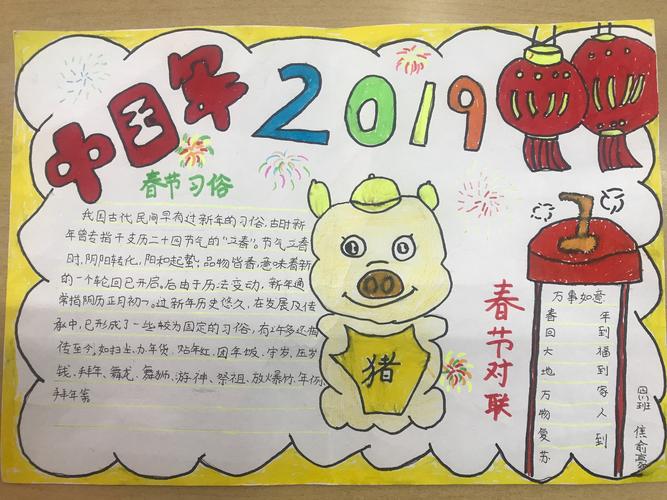 中国年 2019
春节习俗
我国古代民间早有过新年的习俗,古时新
年曾专指干支历二十四节气的“立春”。节气立春
时,阴阳转化,阳和起蛰,品物皆春,意味着新
的一个轮回已开启。后由于历法变动,新年通
常指阴历正月初一。过新年历史悠久,在发展及传
承中,已形成了一些较为固定的习俗,有许多还相
传至今,如扫尘、办年货、贴年红、团年饭、守岁、压岁
钱、拜年、舞龙、舞狮、游神、祭祖、放火暴竹、年例、
拜年等
猪
春节对联
万事如意
春回大地万物复苏
年到福到家人到
四(1)班
焦俞